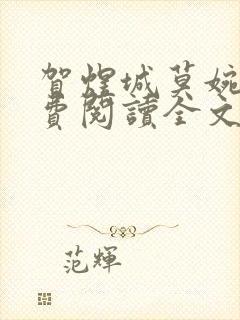 賀煜城莫婉
費閱讀全文
范輝